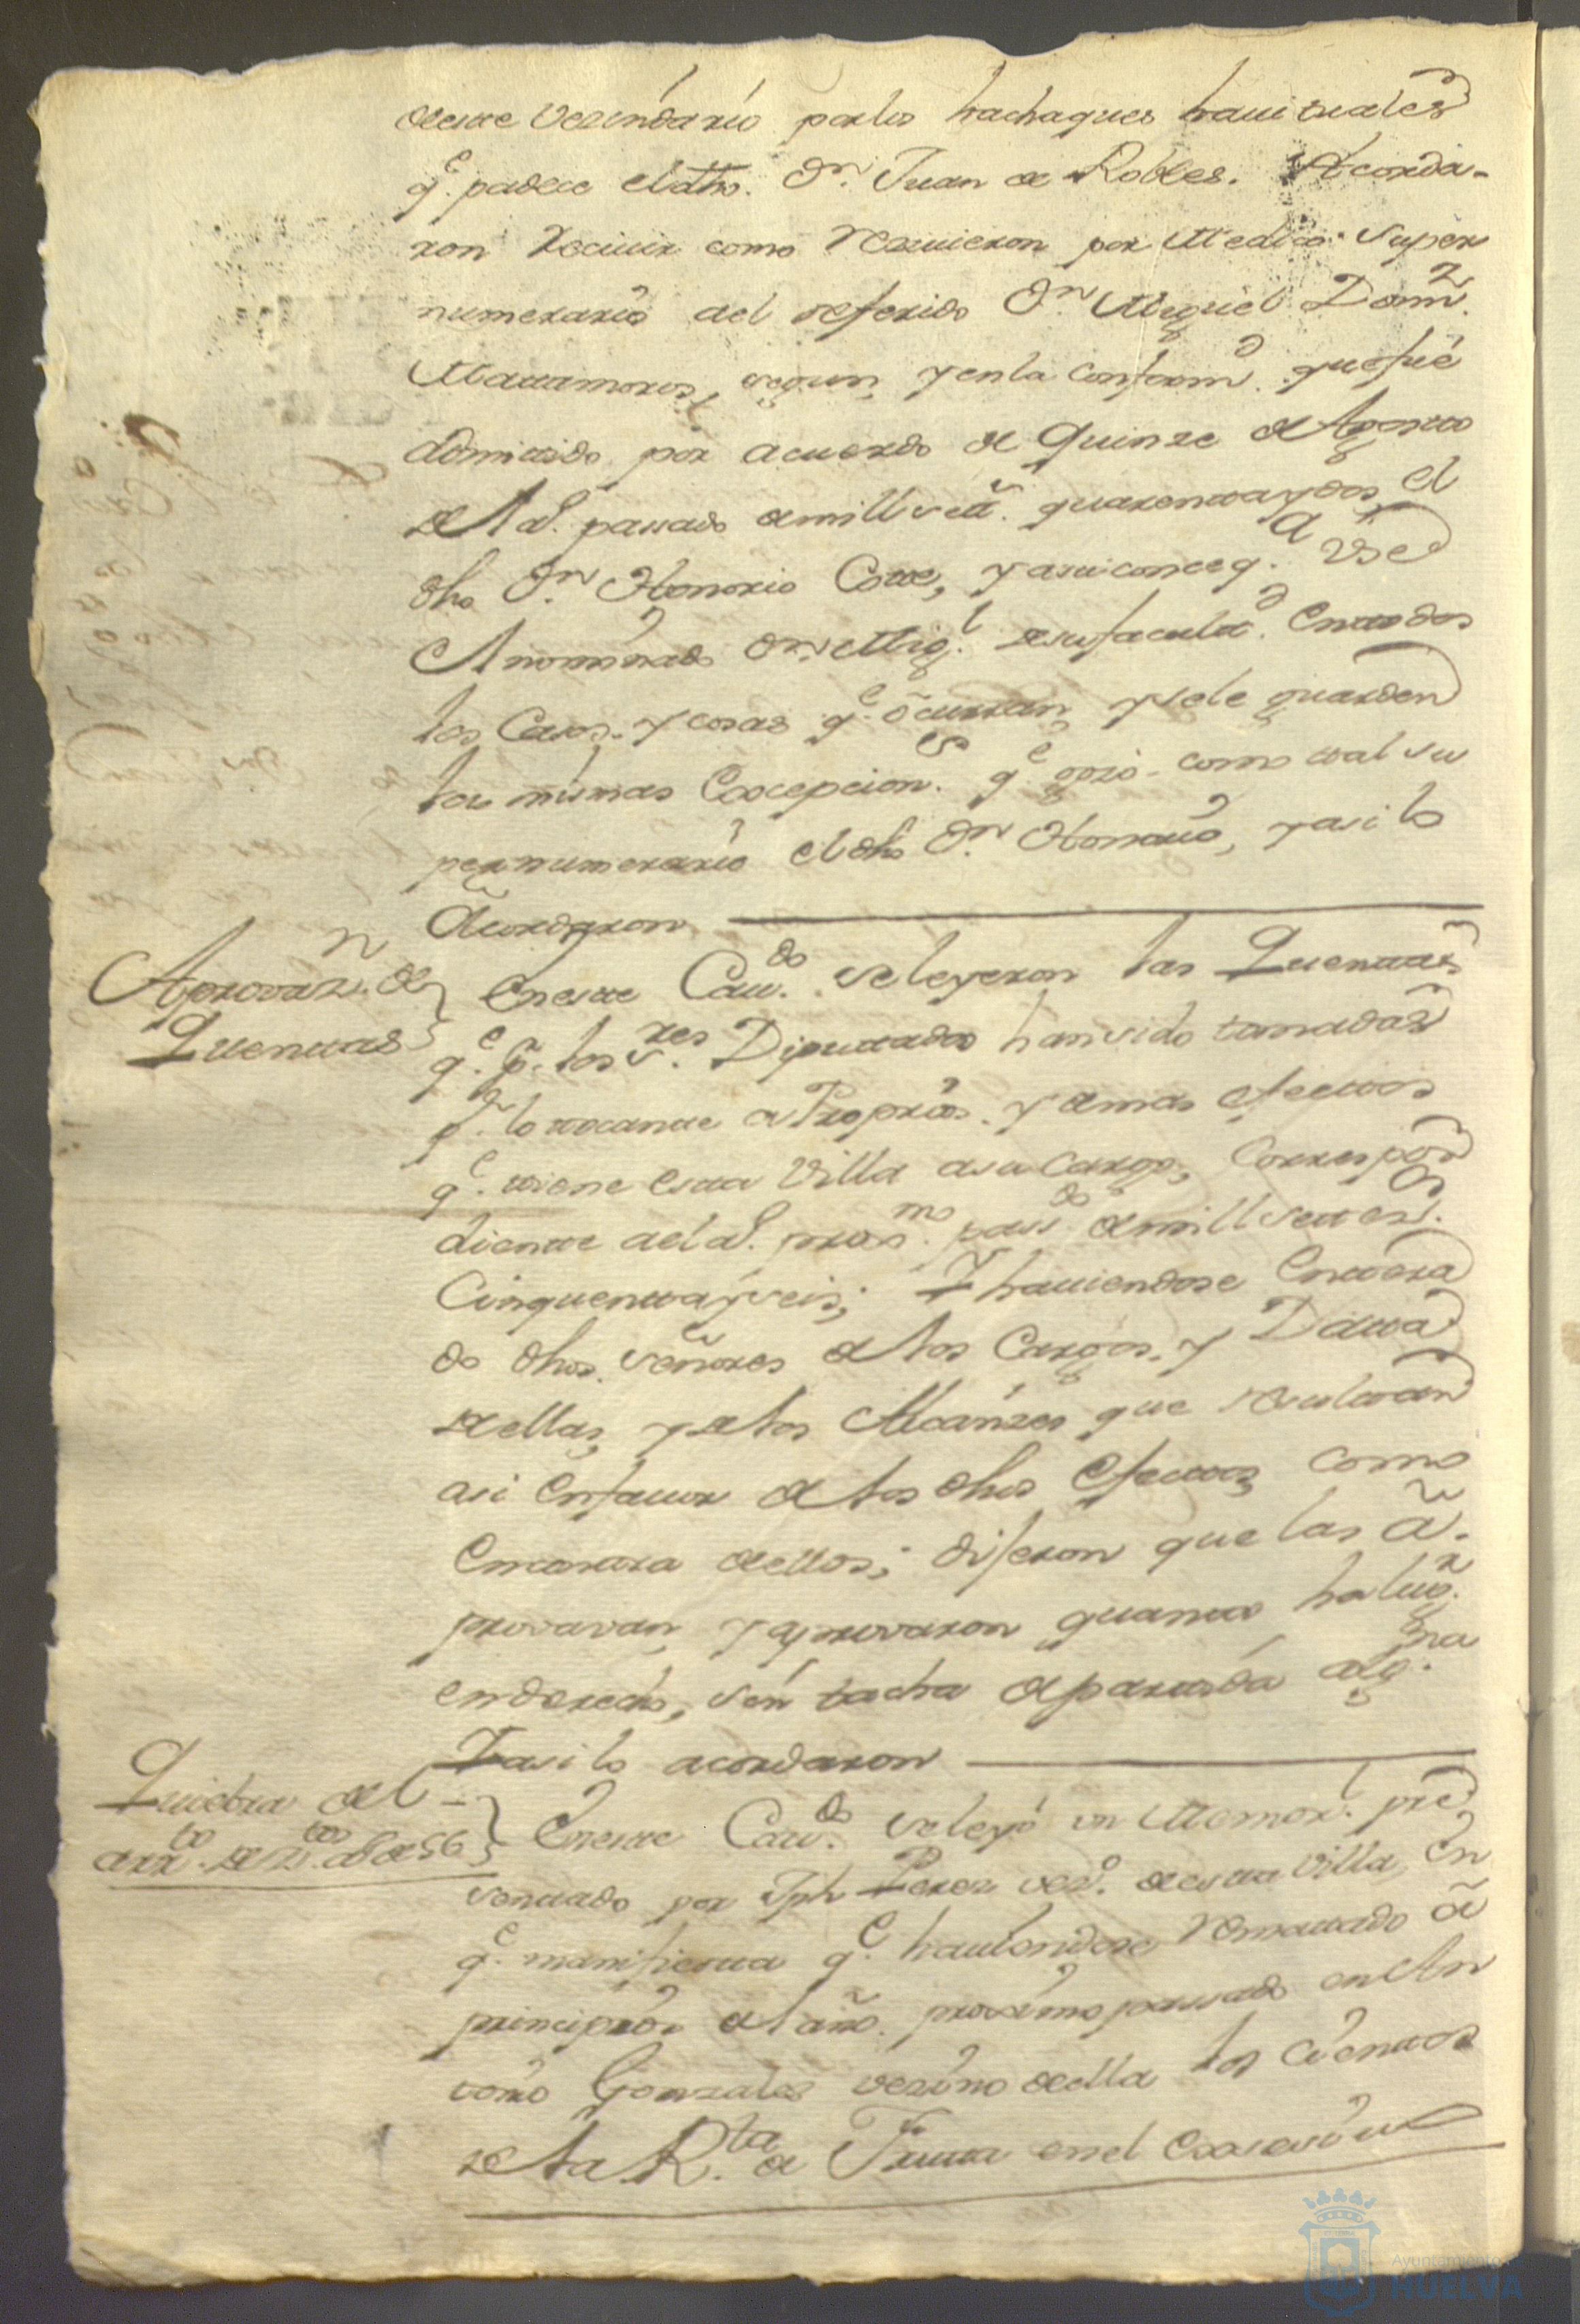 deste Vezindario por los hachaques havituales
q.e padece el dho. Dn. Juan de Robles. Acorda-
ron Recivir como Recivieron por Medico super
numerario ael referido Dn. Miguel Domz.
Matamoros, segun, y en la conformd. que fué
admitido por acuerdo de Quinze de Agosto
del Añ. passado de mill settz. quarenta y dos, el
dho Dn. Honorio Cotte, y asu conceqa. Use
el nominado Dn. Migl. desu facultad. En todos
los Casos. y cosas q.e ocurran, y sele guarden
las mismas Excepciones. q.e gozó. como tal su
pernumerario el dho Dn. Honorio, y asi lo
Acordaron
Aprovazn. de
Quentas
En este Cavdo. se leyeron las Quentas
q.e p.r los Sres. Diputados han sido tomadas
p.r lo tocante a Proprios. y demas efectos
q.e tiene esta Villa asu Cargo, Correspon
diente ael añ. proxmo. passdo. de mill settos.
Cinquenta y seis; Y haviendose Entera
do dhos. señores de los Cargos. y Datta
de ellas, y de los Alcanzes que resultan
asi En favor de los dhos Efectos, como
En contra de ellos; dijeron que las a-
provavan, y aprovaron quanto ha lugr.
en derecho, sin tacha de partida algna.
Y asi lo acordaron
Quiebra del
arrto. de Rta. añ de 56
En este Cavdo. se leyó un Memorl. pre
sentado por Jph Perez vezo. de esta Villa, En
q.e manifiesta q.e haviendose rematado a
principios del año. proximo passado en An
tonio Gonzales vezino de ella los Cientos
de la R.ta de Fruta en el Exsesivo
Ayuntamiento de
HUELVA